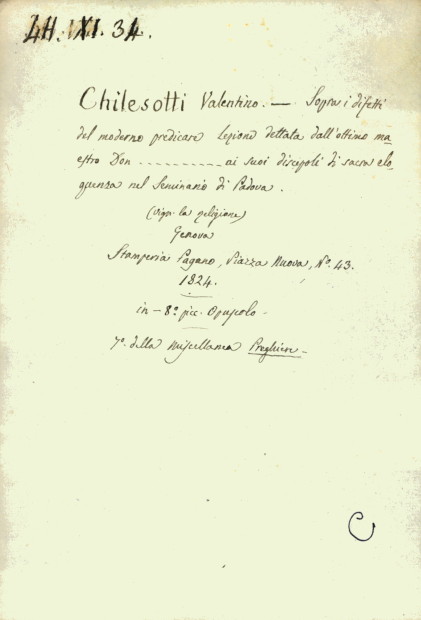 4H. XI. 34.
Chilesotti Valentino. — Sopra i difetti
del moderno predicare Lezione dettata dall'ottimo ma
estro Don .......... ai suoi discepoli di sacra elo
quenza nel Seminario di Padova.
(viva la religione)
Genova
Stamperia Pagano, Piazza Nuova, N.º 43.
1824.
in-8º picc. Opuscolo-
7º. della Miscellanea Preghiere-
C